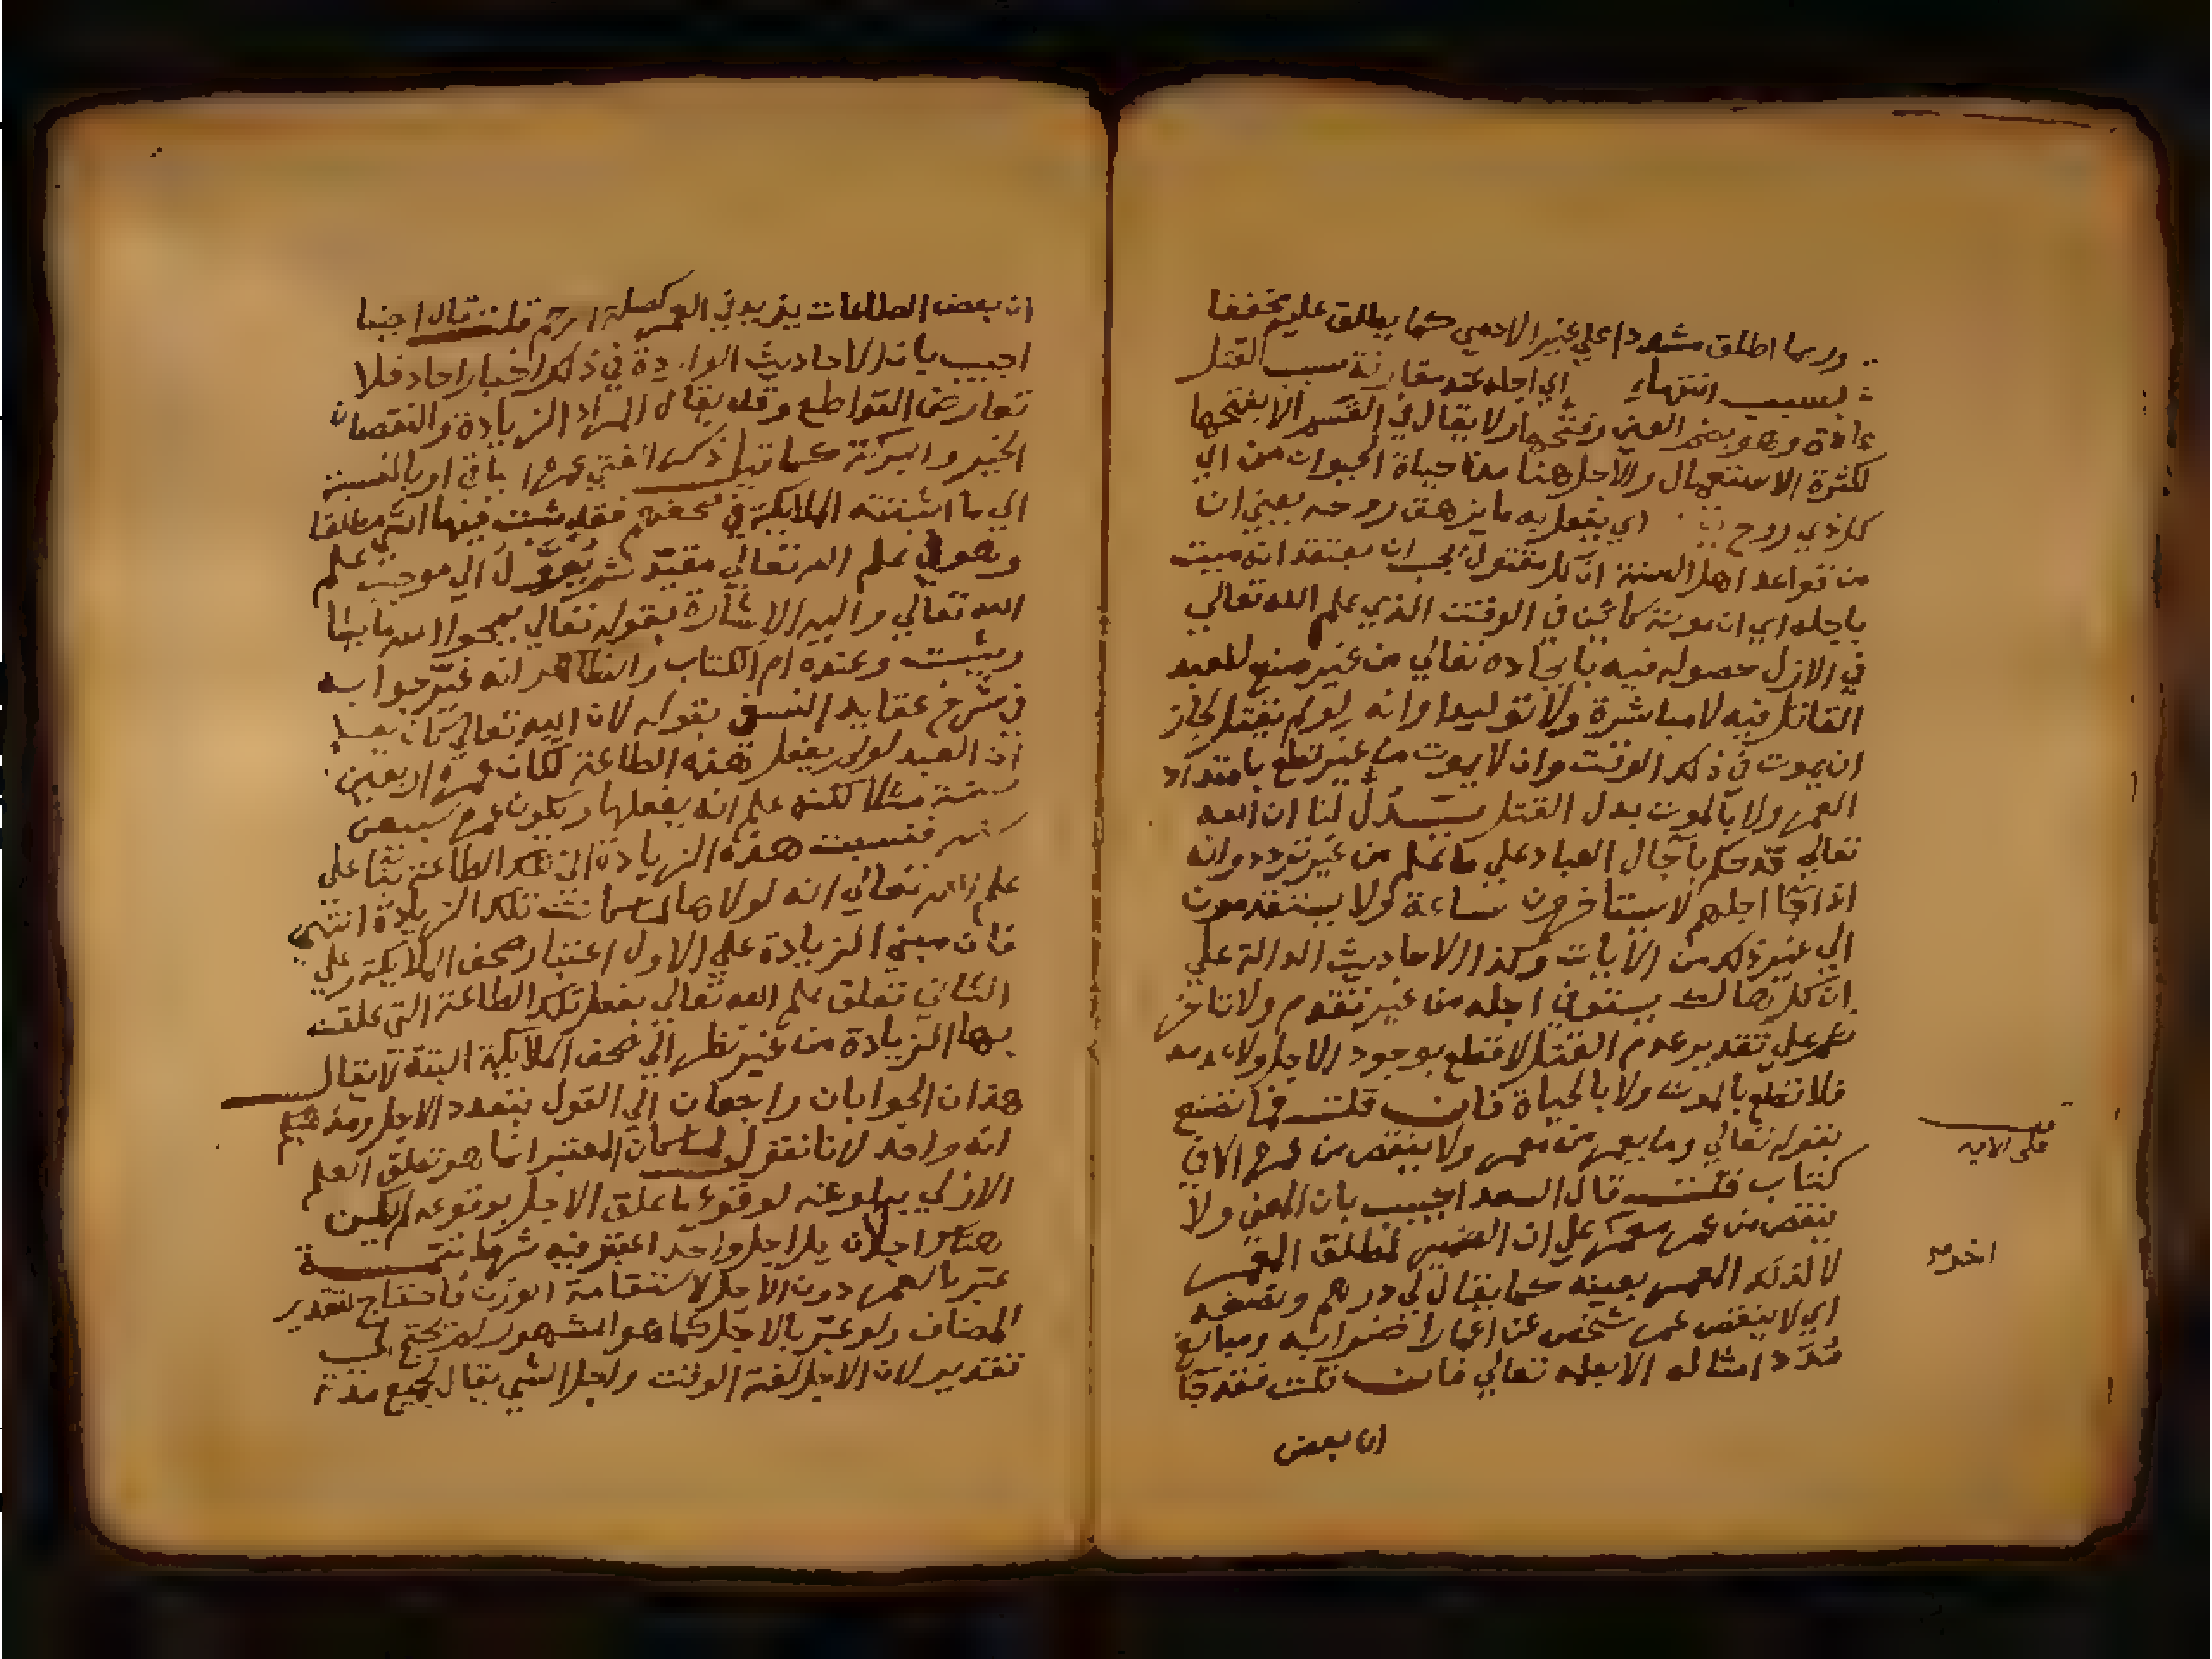 وربما اطلق مشددا علي غير الادمي كما يطلق عليه مخففا
بسبب انتهاء اي اجله عند مقارنة سبب القتل
عادة وهو بضم العين وفتحها ولا يقال في القسم الا بفتحها
لكثرة الاستعمال والاجل هنا مدة حياة الحيوان من اي
كل ذي روح اي يفعل به ما يزهق روحه يعني ان
من قواعد اهل السنة ان كل مقتول يجب ان يعتقد انه ميت
باجله اي ان موته كائن في الوقت الذي علم الله تعالي
في الازل حصوله فيه بايجاده تعالي من غير صنع للعبد
القاتل فيه لا مباشرة ولا توليدا وانه لو لم يقتل لجاز
ان يموت في ذلك الوقت وان لا يموت من غير قطع بامتداد
العمر ولا بالموت بدل القتل لنا ان الله
تعالي قد حكم باجال العباد علي ما علم من غير تردد وانه
اذا جا اجلهم لا يستاخرون ساعة ولا يستقدمون
الي غير ذلك من الايات وكذا الاحاديث الدالة علي
ان كل هالك يستوفي اجله من غير تقدم ولا تاخر
ثم علي تقدير عدم القتل لا قطع بوجود الاجل ولا عدمه
فلا نقطع بالموت ولا بالحياة فان قلت فما تصنع
بقوله تعالي وما يعمر من معمر ولا ينقص من عمره الا في
كتاب قلت قال السعد اجيب بان المعني ولا
ينقص من عمر معمر علي ان الضمير لمطلق المعمر
لا لذلك المعمر بعينه كما يقال لي درهم ونصفه
اي لا ينقص عمر شخص عن اعمار اضرابه ومبالغ
مدد امثاله الا بعلمه تعالي فان قلت فقد جا
ان بعض
علي الاية
ان بعض الطاعات يزيد في العمر كصلة الرحم قلت قال ايضا
اجيب بان الاحاديث الواردة في ذلك اخبار احاد فلا
تعارض القواطع وقد يقال المراد الزيادة والنقصان
الخير والبركة كما قيل ذكر الفتي عمره الباقي او بالنسبة
الي ما اثبتته الملايكة في صحفهم فقد يثبت فيها الشي مطلقا
وهو في علم الله تعالي مقيد ثم يؤول الي موجب علم
الله تعالي واليه الاشارة بقوله تعالي يمحو الله ما يشا
ويثبت وعنده ام الكتاب والظاهر انه غير جوابه
في شرح عقايد النسفي بقوله لان الله تعالي كان يعلم
ان العبد لو لم يفعل هذه الطاعة لكان عمره اربعين
سنة مثلا لكنه علم انه يفعلها ويكون عمره سبعين
سنة فنسبت هذه الزيادة الي تلك الطاعة بنا علي
علم الله تعالي انه لولاها لما كانت تلك الزيادة انتهي
فان مبني الزيادة علي الاول اعتبار صحف الملايكة وعلي
الثاني تعلق علم الله تعالي بفعل تلك الطاعة التي علقت
بها الزيادة من غير نظر الي صحف الملايكة البتة لا يقال
هذان الجوابان راجعان الي القول بتعدد الاجل ومذهبكم
انه واحد لانا نقول لما كان المعتبر انما هو تعلق العلم
الازلي ببلوغه لوقوع ما علق الاجل بوقوعه لم يكن
هناك اجلان بل اجل واحد اعتبر فيه شرط تتمة
عبر بالعمر دون الاجل لاستقامة الوزن فاحتاج لتقدير
المضاف ولو عبر بالاجل كما هو المشهور لم يحتج الي
تقدير لان الاجل لغة الوقت واجل الشي يقال لجميع مدة